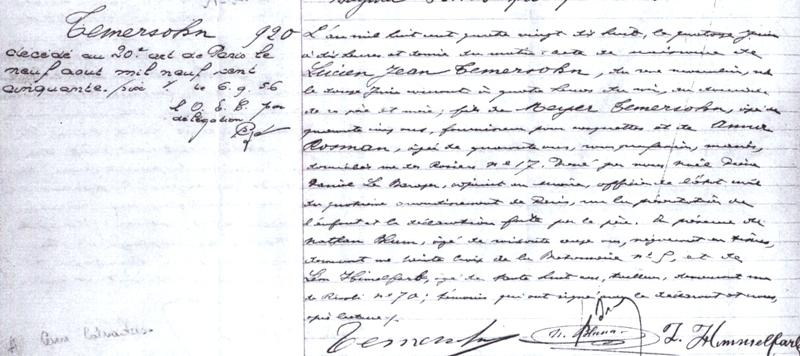 Temersohn 920
decédé au 20e arrt de Paris le
neuf aout mil neuf cent
cinquante. le 6.9.56
l'O. E. C. par
délégation
L'an mil huit cent quatre vingt dix huit, le quatorze Juin
à dix heures et demie du matin: acte de naissance de
Lucien Jean Temersohn, du sexe masculin, né
le douze Juin courant à quatre heures du soir, au domicile
de ses père et mère; fils de Meyer Temersohn, âgé de
quarante cinq ans, fournisseur pour casquettes et de Annie
Rosman, âgée de quarante ans, sans profession, mariés,
domiciliés rue des Rosiers No 17. Dressé par nous
adjoint au maire, officier de l'Etat civil
du quatrième arrondissement de Paris, sur la présentation de
l'enfant et la déclaration faite par le père. En présence de
Nathan Blum, âgé de soixante onze ans,
demeurant rue Sainte Croix de la Bretonnerie No 5, et de
Léon Himelfarb, âgé de trente huit ans, tailleur, demeurant rue
de Rivoli No 70; témoins qui ont signé avec le déclarant et nous,
après lecture./.
N. Blum L. Himmelfarb